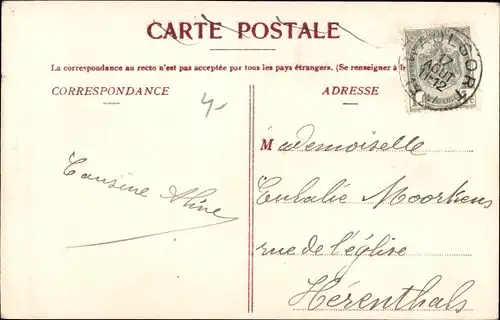 CARTE POSTALE
La correspondance au recto n'est pas acceptée par tous les pays étrangers. (Se renseigner à
CORRESPONDANCE
ADRESSE
4-
17
AOUT
11-12
Mademoiselle
Cousine Aline
Eulalie Moorkens
rue de l'église
Hérenthals